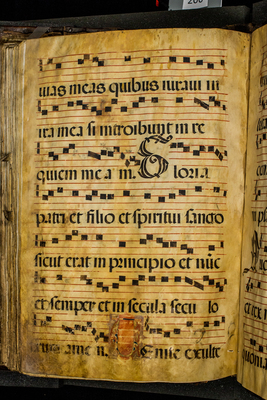 200
uias meas quibus iuraui in
ira mea si introibunt in re
quiem me a m. Gloria
patri et filio et spiritui sancto
sicut erat in principio et nūc
et semper et in secula secu lo
ame n. Enite exulte